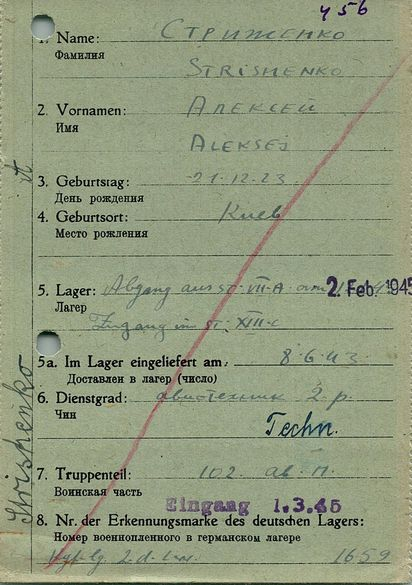 у 56
1. Name: Стриженко
Фамилия
Strishenko
2. Vornamen: Алексей
Имя
Aleksej
3. Geburtstag: 21.12.23
День рождения
4. Geburtsort: Киев
Место рождения
5. Lager: Abgang aus St. VII-A vom 2. Feb. 1945
Лагерь
Zugang im St. XIII-C
5a. Im Lager eingeliefert am: 8.6.43
Доставлен в лагерь (число)
6. Dienstgrad: авиотехник 2 р.
Чин
Techn.
7. Truppenteil: 102 ав п.
Воинская часть
Eingang 1.3.45
8. Nr. der Erkennungsmarke des deutschen Lagers:
Номер военнопленного в германском лагере
1659
Strishenko